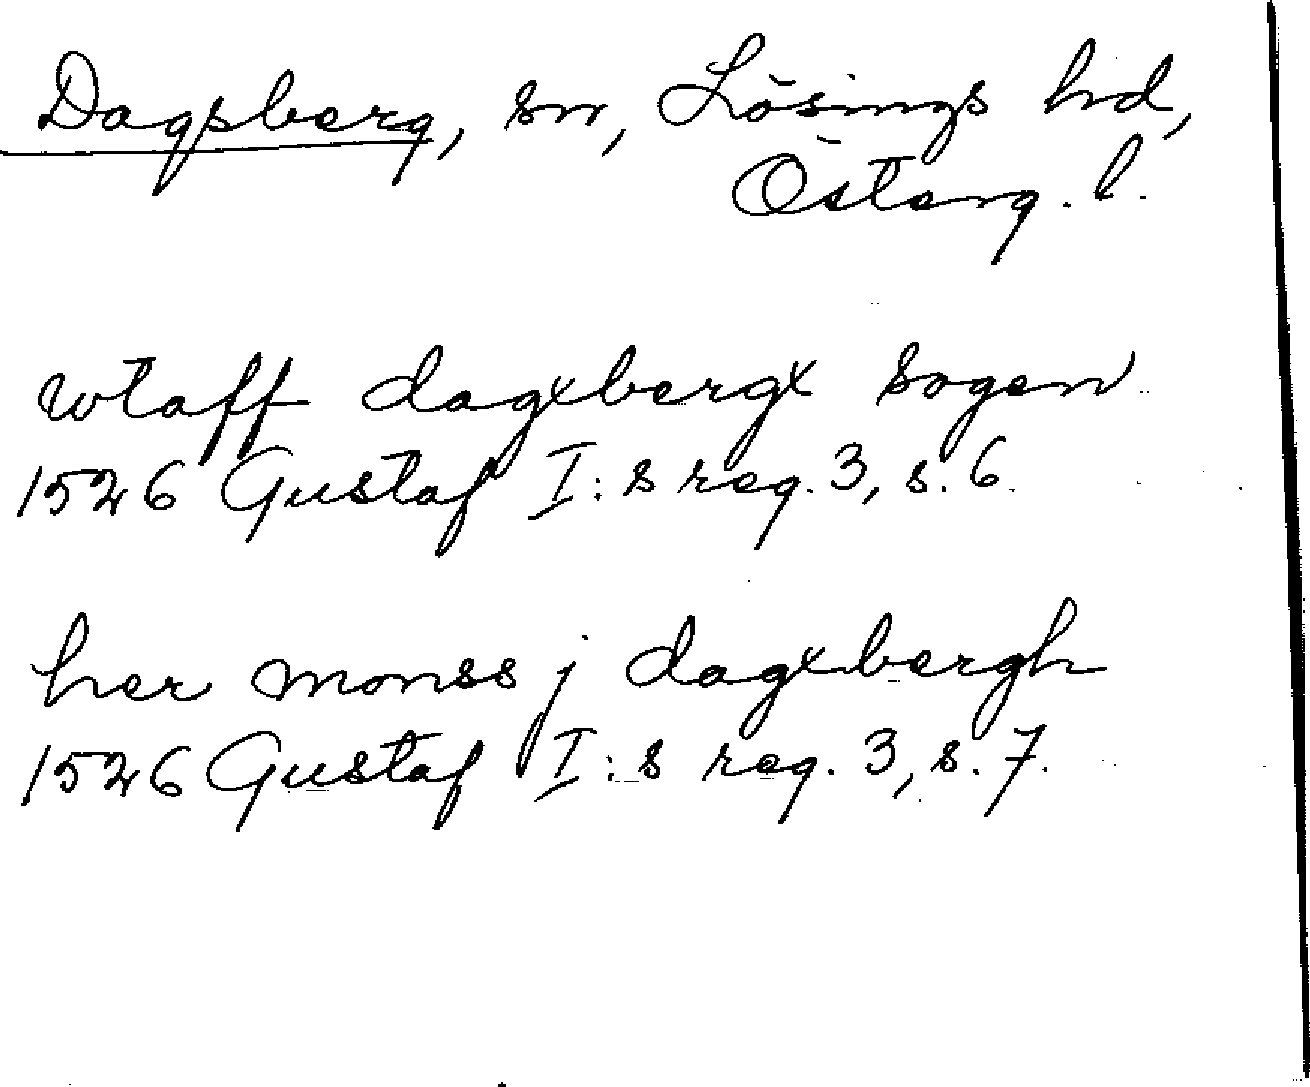 Dagsberg, sn, Lösings hd,
Österg. l.
wtaff dagxbergx sogen
1526 Gustaf I:s reg. 3, s. 6.
her monss j dagxbergh
1526 Gustaf I:s reg. 3, s. 7.